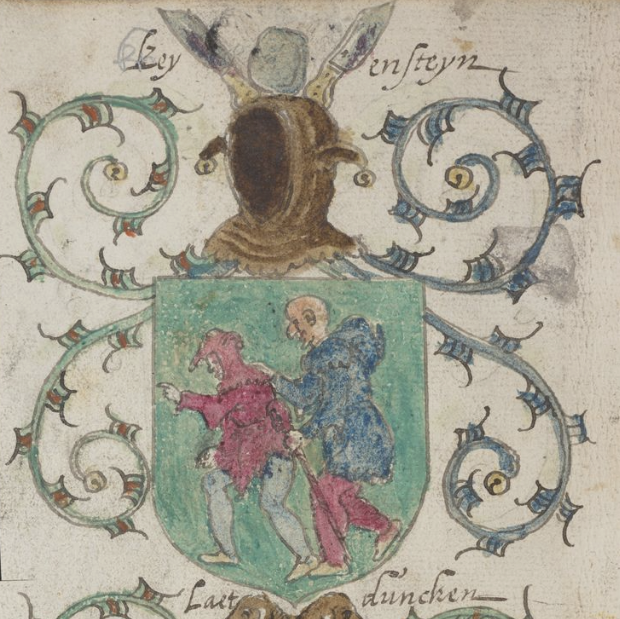 key ensteyn
Laet duncken